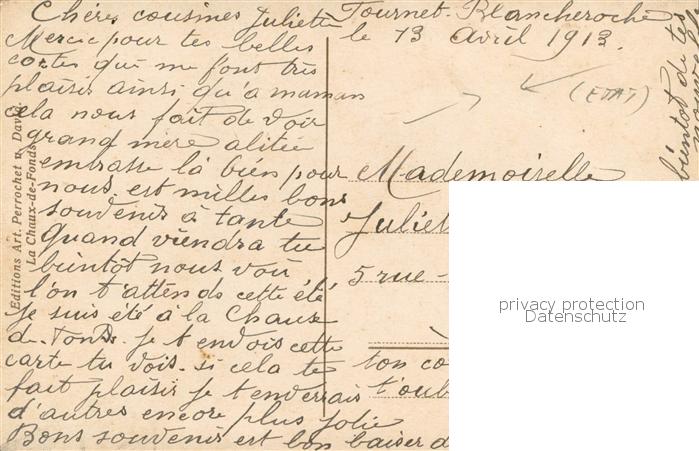 Chères cousines Juliette
Mercie pour tes belles
cartes qui me font très
plaisir ainsi qu'a maman
cela nous fait de voir
grand mère alitée
embrasse là bien pour
nous est milles bons
souvenir à tante
quand viendra tu
bientôt nous voir
l'on t'attends cette été
je suis été à la Chaux
de-Fonds. je t'envois cette
carte tu vois si cela te
fait plaisir je t'enverrais
d'autres encore plus jolie
Bons souvenir est bon baiser d
Fournet-Blancheroche
le 13 Avril 1913.
(ETAT)
Mademoiselle
Juliet
5 rue
ton co
t'oubl
bientôt de tes
Editions Art. Perrochet u. David
La Chaux-de-Fonds
privacy protection
Datenschutz